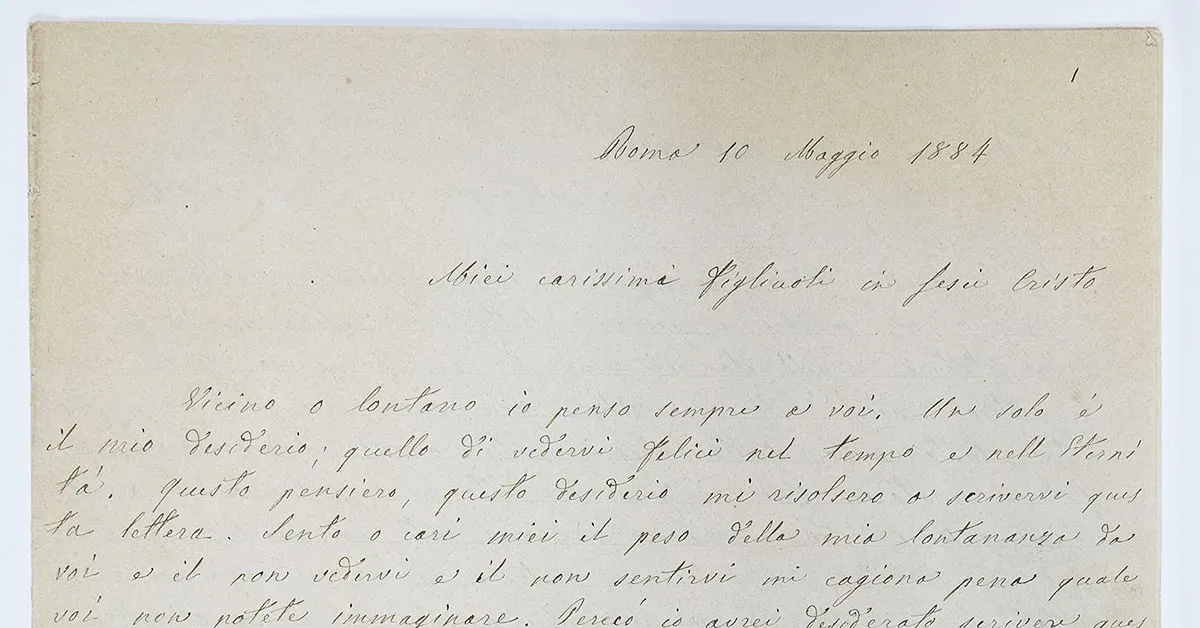 1
Roma 10 Maggio 1884
Miei carissimi figliuoli in Gesù Cristo
Vicino o lontano io penso sempre a voi. Un solo è
il mio desiderio; quello di vedervi felici nel tempo e nell Eterni
tà. Questo pensiero, questo desiderio mi risolsero a scrivervi ques
ta lettera. Sento o cari miei il peso della mia lontananza da
voi e il non vedervi e il non sentirvi mi cagiona pena quale
voi non potete immaginare. Perciò io avrei desiderato scrivere ques